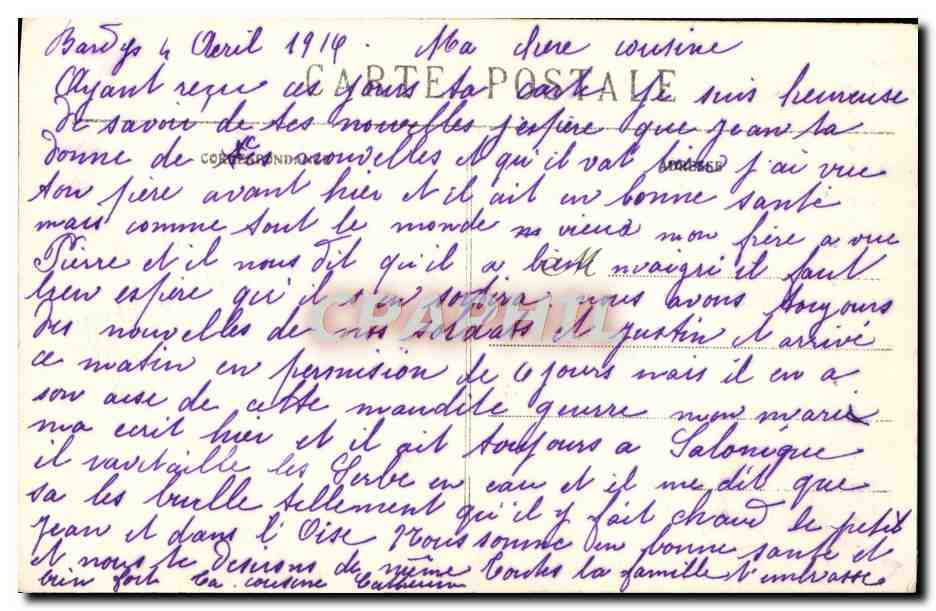 Bardys 4 Avril 1916. Ma chere cousine
CARTE POSTALE
Ayant reçu ces jours ta carte je suis heureuse
de savoir de tes nouvelles j'espère que Jean ta
CORRESPONDANCE ADRESSE
donne de ses nouvelles et qu'il vat bien j'ai vue
ton père avant hier et il ait en bonne santé
mais comme tout le monde vieux mon frère a vue
Pierre et il nous dit qu'il a bien maigri il faut
bien espère qu'il s'en sortira nous avons toujours
CPAPHIL
des nouvelles de nos soldats et Justin et arrivé
ce matin en permision de 6 jours mais il en a
son aise de cette maudite guerre mon marie
ma ecrit hier et il ait toujours a Salonique
il ravitaille les Serbe en eau et il me dit que
sa les brulle tellement qu'il y fait chaud le petit
Jean et dans l'Oise Nous somme en bonne santé et
et nous te desirons de même Toutes la famille t'embrasse
bien fort Ta cousine Catherine